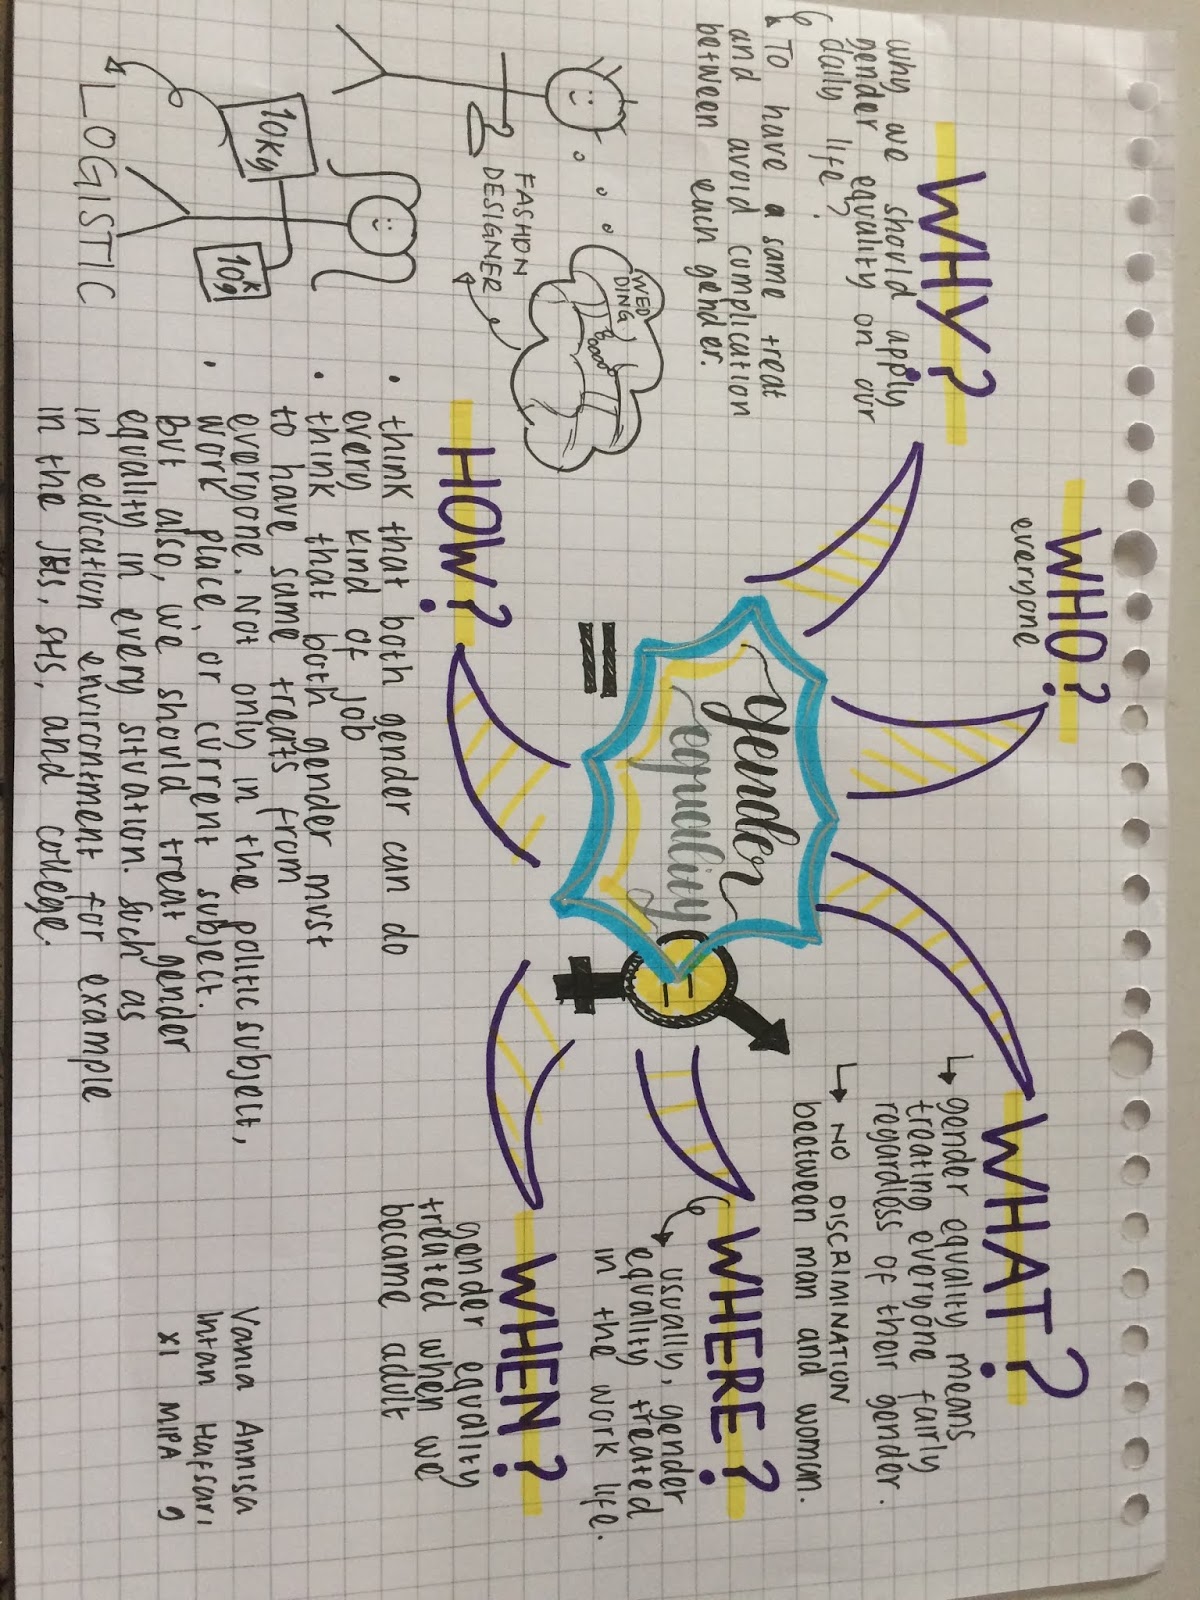 WHY?
why we should apply
gender equality on our
daily life?
To have a same treat
and avoid complication
between each gender.
WHO?
everyone
WHAT?
gender equality means
treating everyone fairly
regardless of their gender.
NO DISCRIMINATION
beetween man and woman.
gender
equality
=
WHERE?
usually, gender
equality treated
in the work life.
WHEN?
gender equality
treated when we
became adult
HOW?
• think that both gender can do
every kind of job
• think that both gender must
to have same treats from
everyone. Not only in the politic subject,
• work place, or current subject.
but also, we should treat gender
equality in every situation. Such as
in education environtment for example
in the JHS, SHS, and college.
WED
DING
FASHION
DESIGNER
10Kg
10K
g
LOGISTIC
Vania Annisa
Intan Hafsari
XI MIPA 9